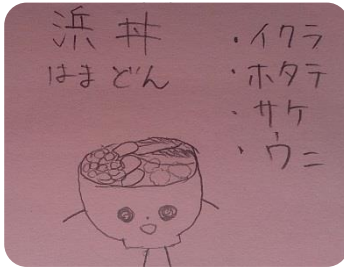 浜丼
はまどん
・イクラ
・ホタテ
・サケ
・ウニ